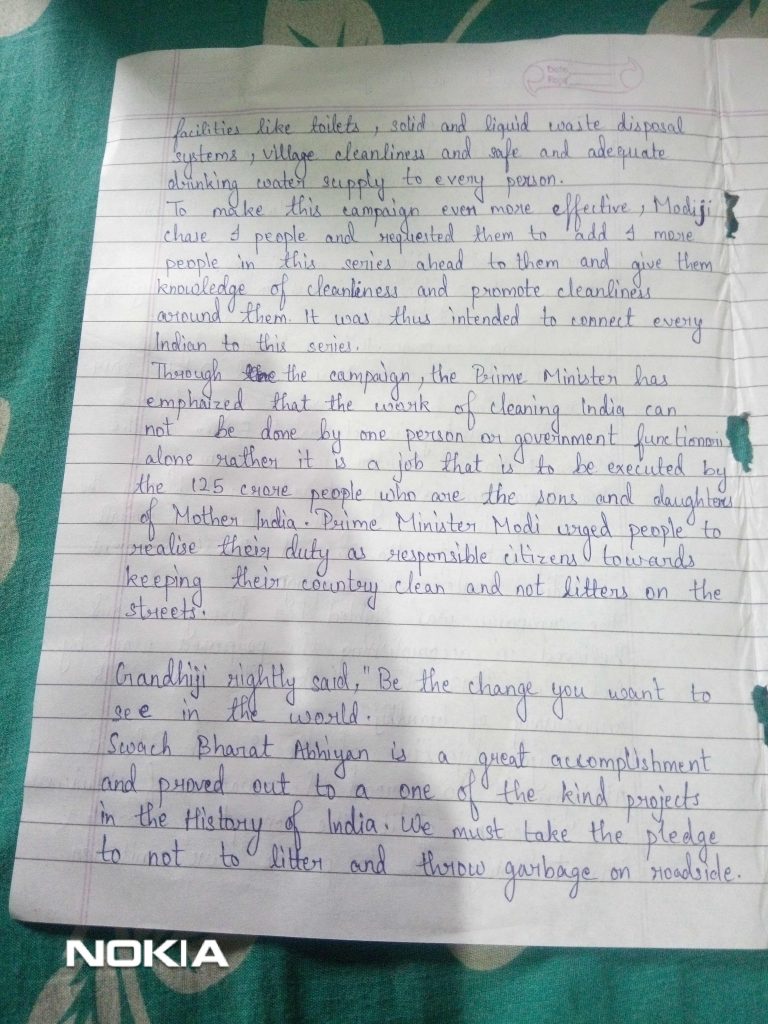 Date
Page
facilities like toilets, solid and liquid waste disposal
systems, village cleanliness and safe and adequate
drinking water supply to every person.
To make this campaign even more effective, Modiji
chose 9 people and requested them to add 9 more
people in this series ahead to them and give them
knowledge of cleanliness and promote cleanliness
around them. It was thus intended to connect every
Indian to this series.
Through the campaign, the Prime Minister has
emphaized that the work of cleaning India can
not be done by one person or government functionary
alone rather it is a job that is to be executed by
the 125 crore people who are the sons and daughters
of Mother India. Prime Minister Modi urged people to
realise their duty as responsible citizens towards
keeping their country clean and not litters on the
streets.
Gandhiji rightly said, "Be the change you want to
see in the world.
Swach Bharat Abhiyan is a great accomplishment
and proved out to a one of the kind projects
in the History of India. We must take the pledge
to not to litter and throw garbage on roadside.
NOKIA